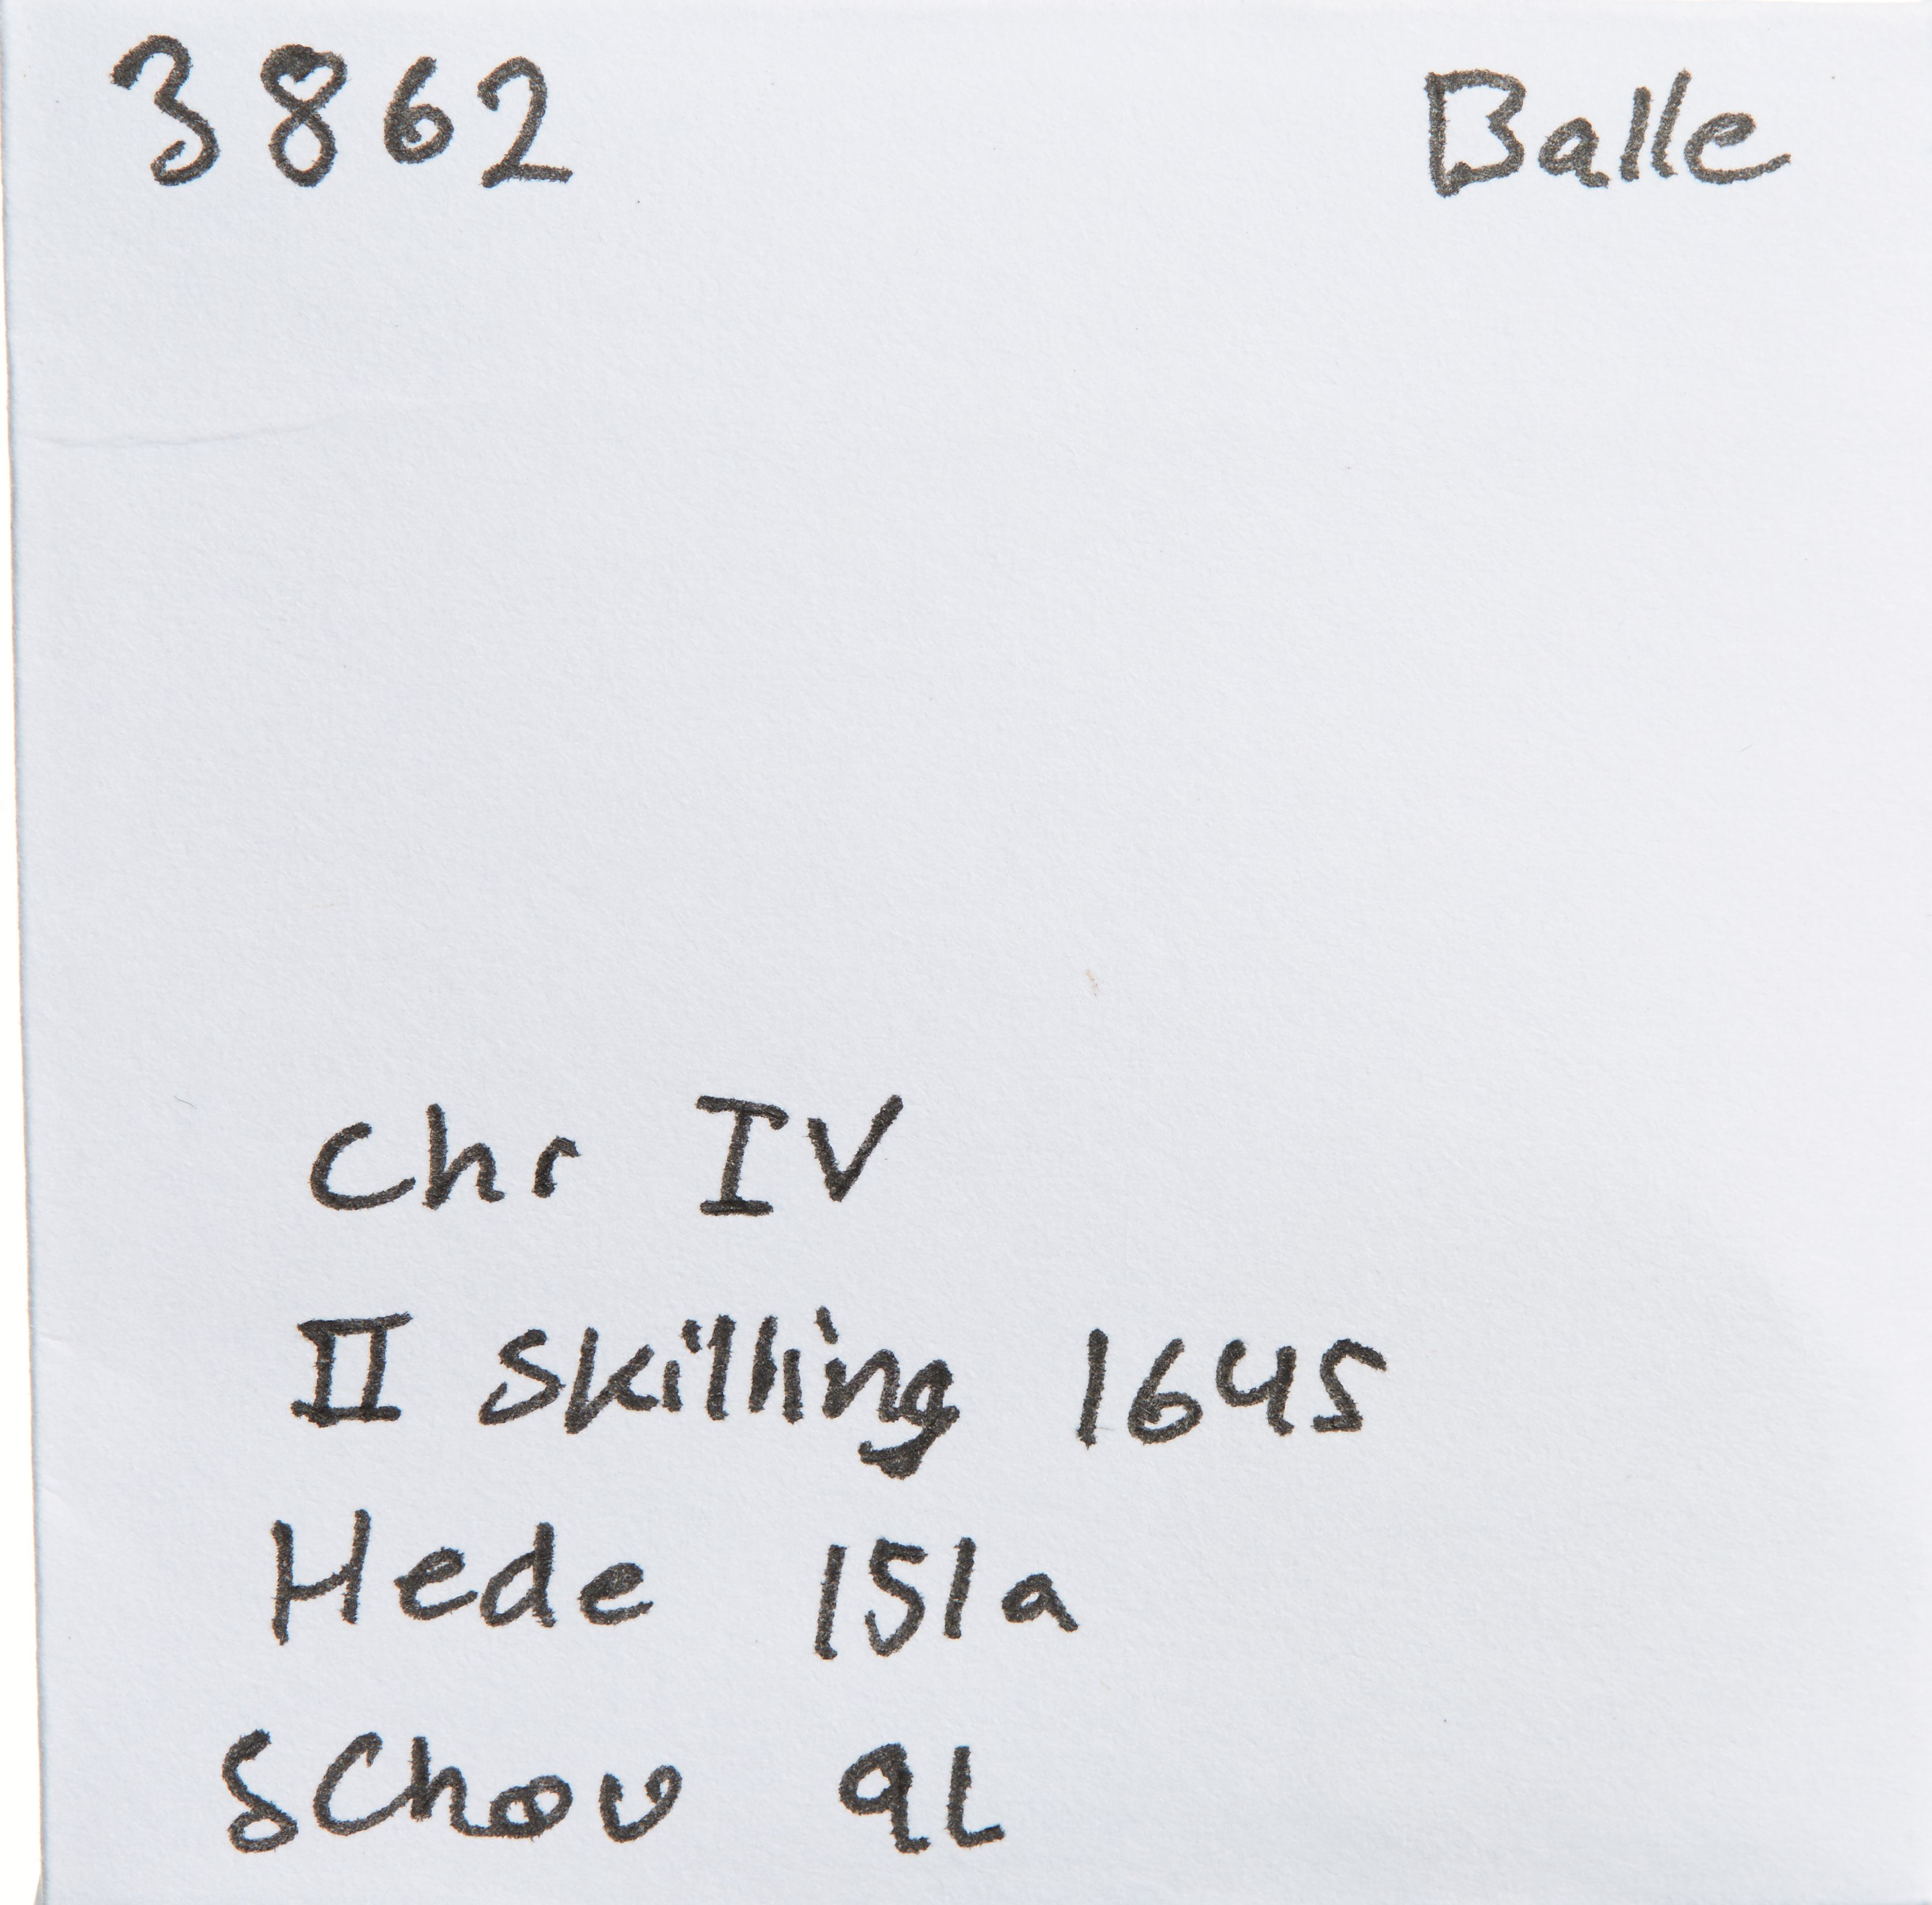 3862 Balle
Chr IV
II Skilling 1645
Hede 151a
Schou 9L